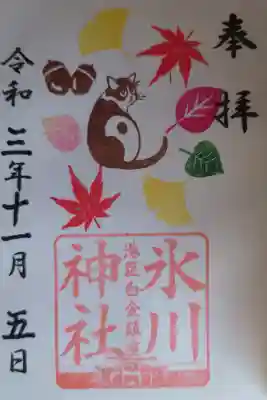 奉拝
港区白金鎮座
氷川
神社
令和三年十一月五日